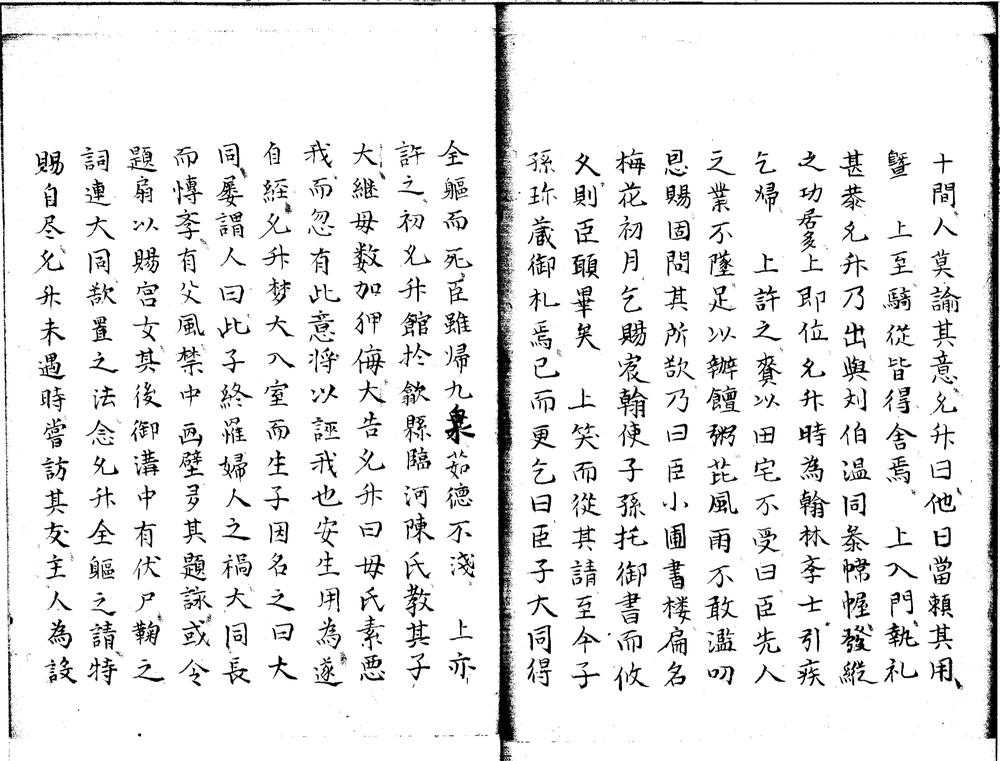 十間人莫諭其意允升曰他日當賴其用
曁　上至騎從皆得舍焉　上入門執礼
甚恭允升乃出與刘伯温同叅幃幄發縱
之功居多上即位允升時為翰林李士引疾
乞歸　上許之賚以田宅不受曰臣先人
之業不墜足以辦饘粥芘風雨不敢濫叨
恩賜固問其所欲乃曰臣小圃書楼扁名
梅花初月乞賜宸翰使子孫托御書而攸
久則臣願畢矣　上笑而從其請至今子
孫珎蔵御札焉已而更乞曰臣子大同得
全軀而死臣雖帰九泉茹德不淺　上亦
許之初允升館扵歙縣臨河陳氏教其子
大継母数加狎侮大告允升曰母氏素悪
我而忽有此意将以誣我也安生用為遂
自經允升梦大入室而生子因名之曰大
同屡謂人曰此子終罹婦人之禍大同長
而愽李有父風禁中画壁多其題詠或令
題扇以賜宫女其後御溝中有伏尸鞠之
詞連大同欲置之法念允升全軀之請特
賜自尽允升未遇時嘗訪其友主人為設